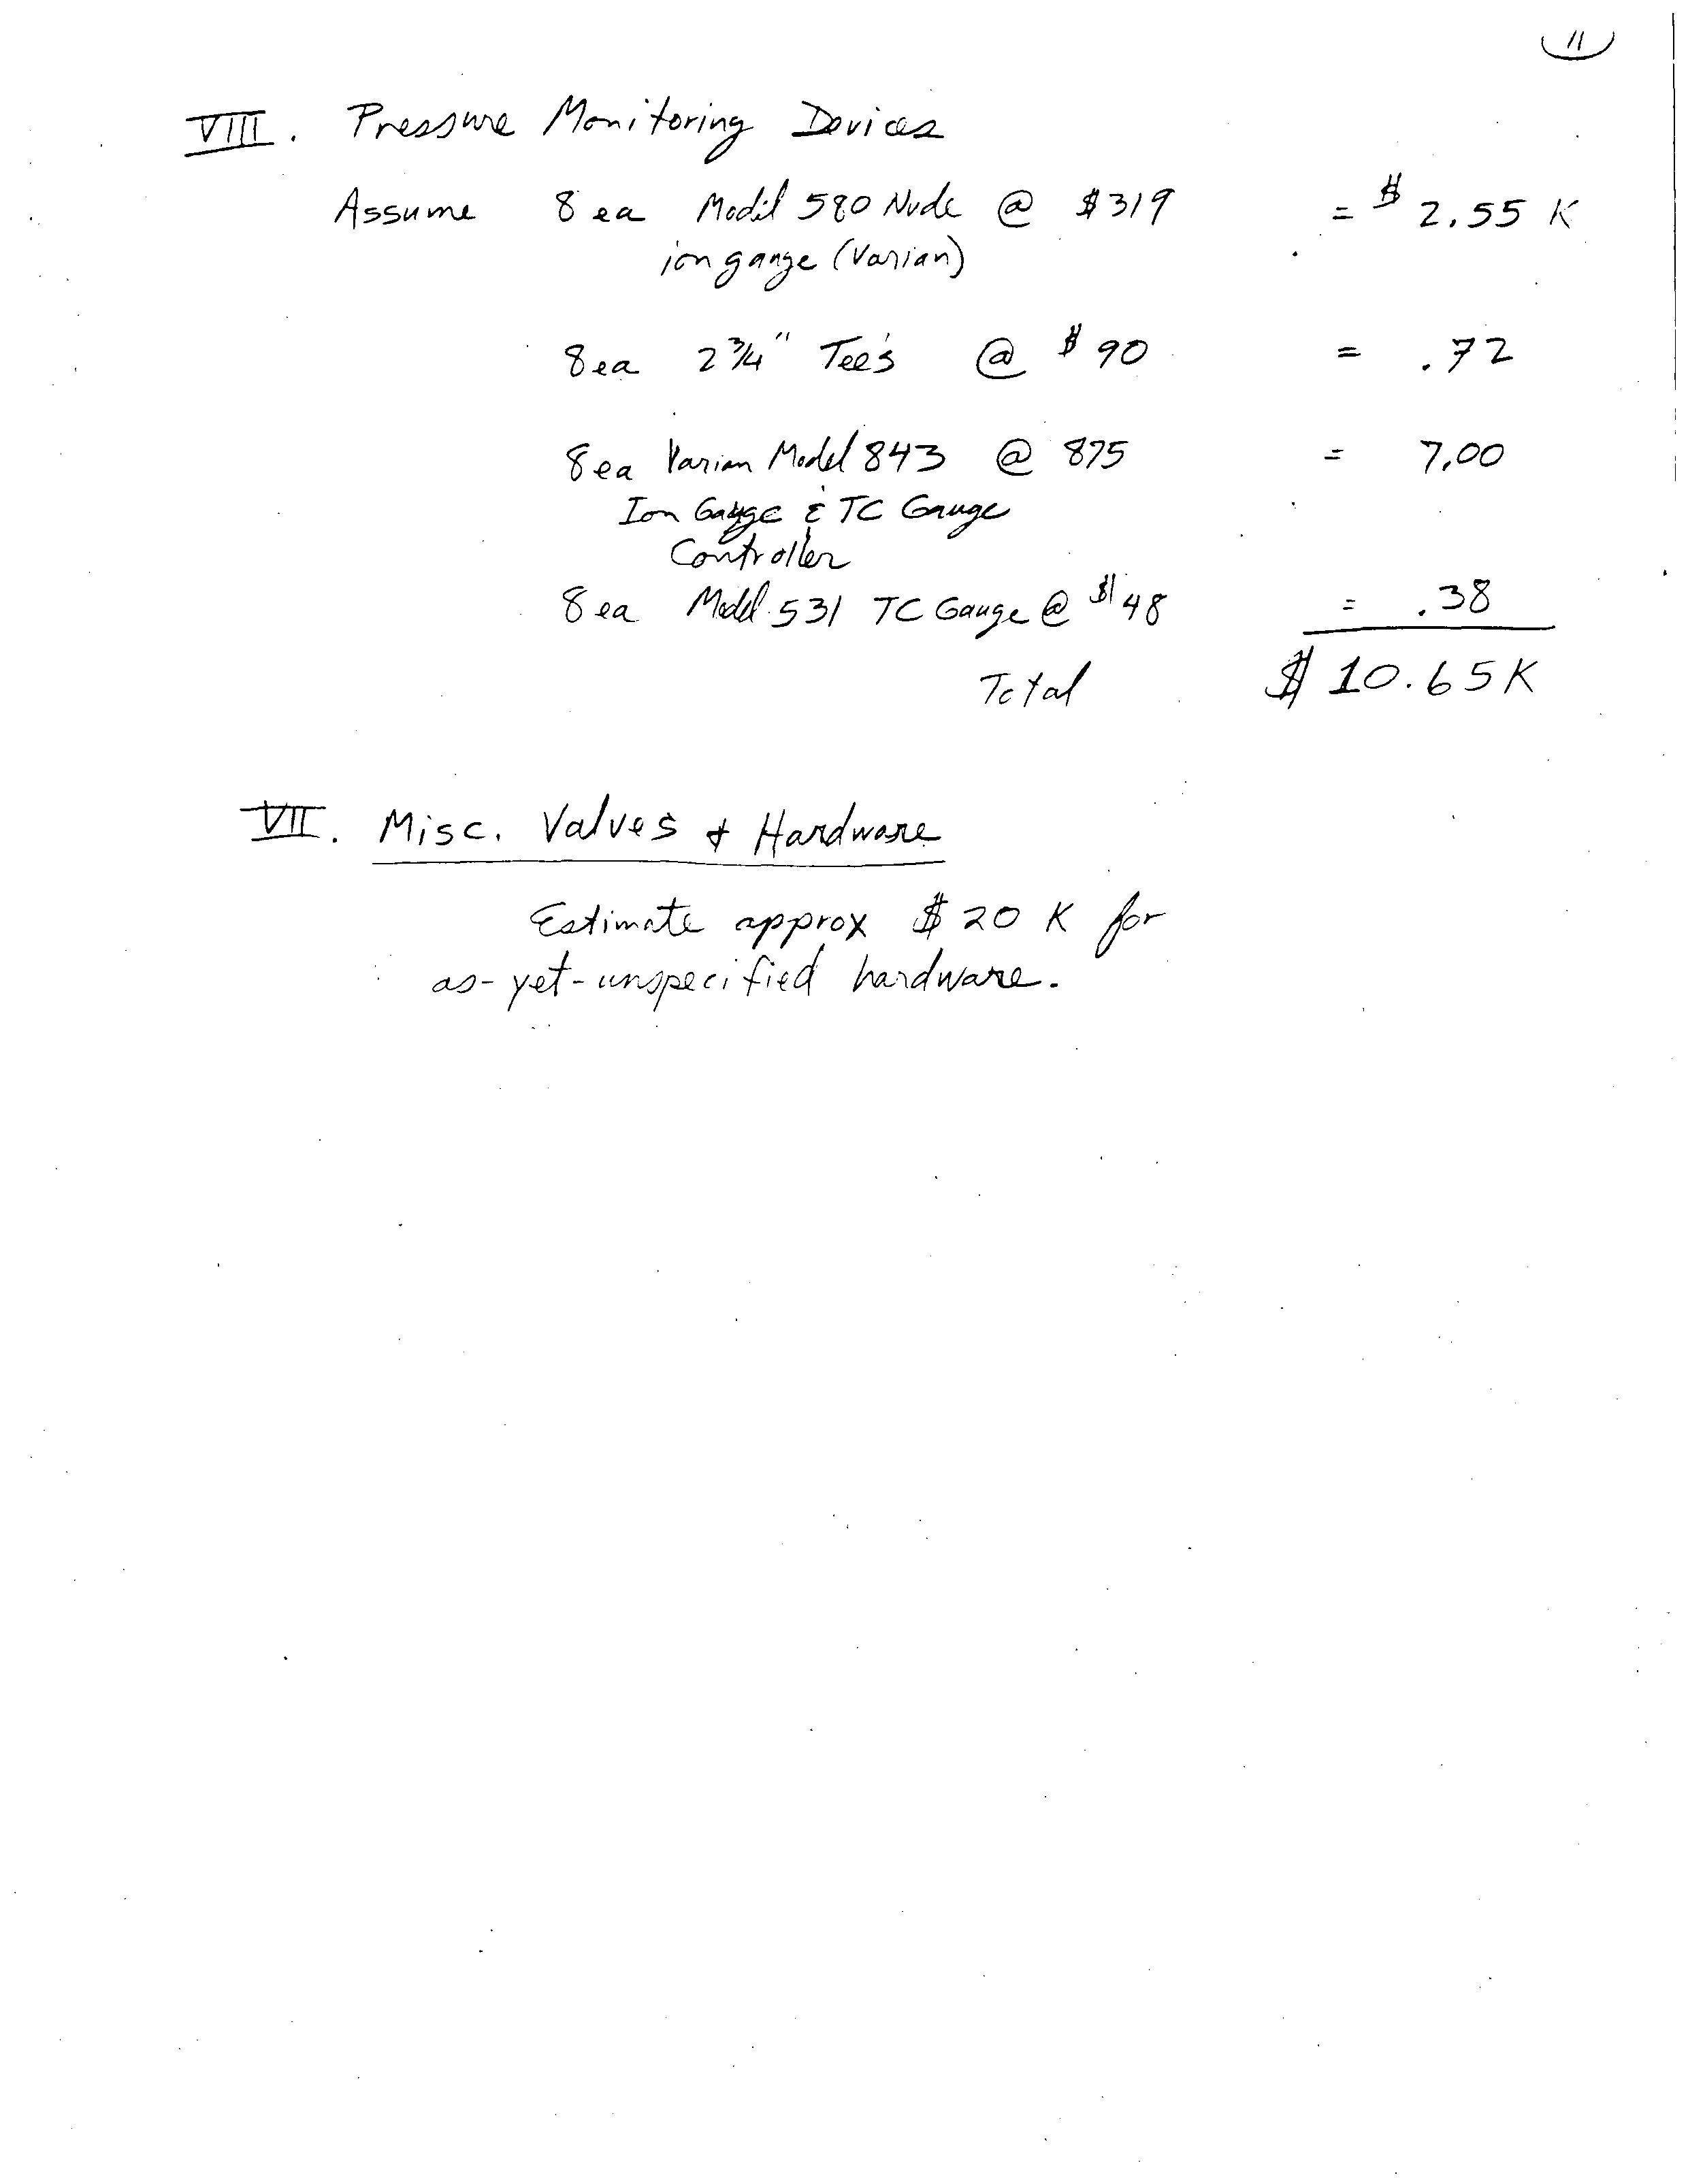 11
VIII. Pressure Monitoring Devices
Assume 8 ea Model 580 Nude @ $319 = $ 2.55 K
ion gauge (Varian)
8 ea 2 3/4" Tee's @ $ 90 = .72
8 ea Varian Model 843 @ 875 = 7.00
Ion Gauge & TC Gauge
Controller
8 ea Model 531 TC Gauge @ $48 = .38
Total $ 10.65 K
VII. Misc. Valves & Hardware
Estimate approx $ 20 K for
as-yet-unspecified hardware.